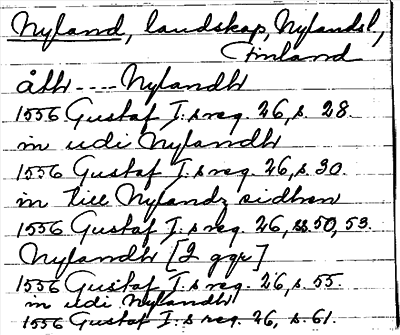 Nyland, landskap, Nylandsl,
Finland
åth ---- Nylandh
1556 Gustaf I:s reg. 26, s. 28.
in udi Nylandh
1556 Gustaf I:s reg. 26, s. 30.
in till Nylandz sidhen
1556 Gustaf I:s reg. 26, ss. 50, 53.
Nylandh [2 ggr]
1556 Gustaf I:s reg. 26, s. 55.
in udi Nylandh
1556 Gustaf I:s reg. 26, s. 61.